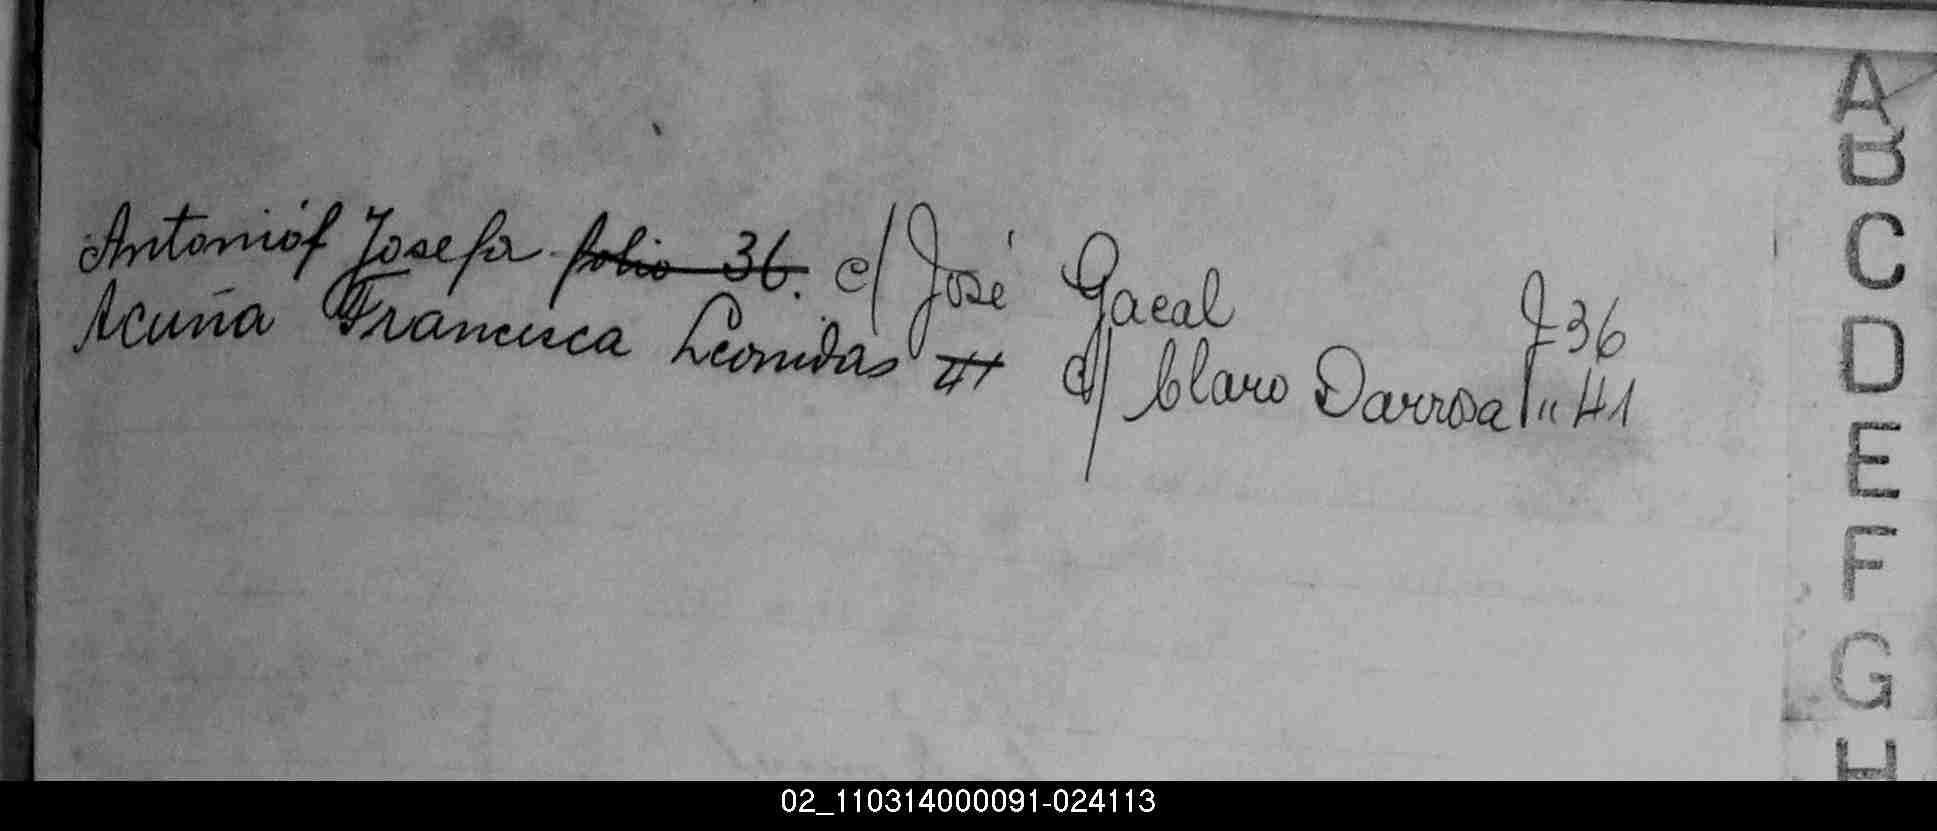 Antonióf Josefa folio 36. c/ José Gacal f 36
Acuña Francisca Leonidas c/ Claro Darrosa " 41
A
B
C
D
E
F
G
H
02_110314000091-024113